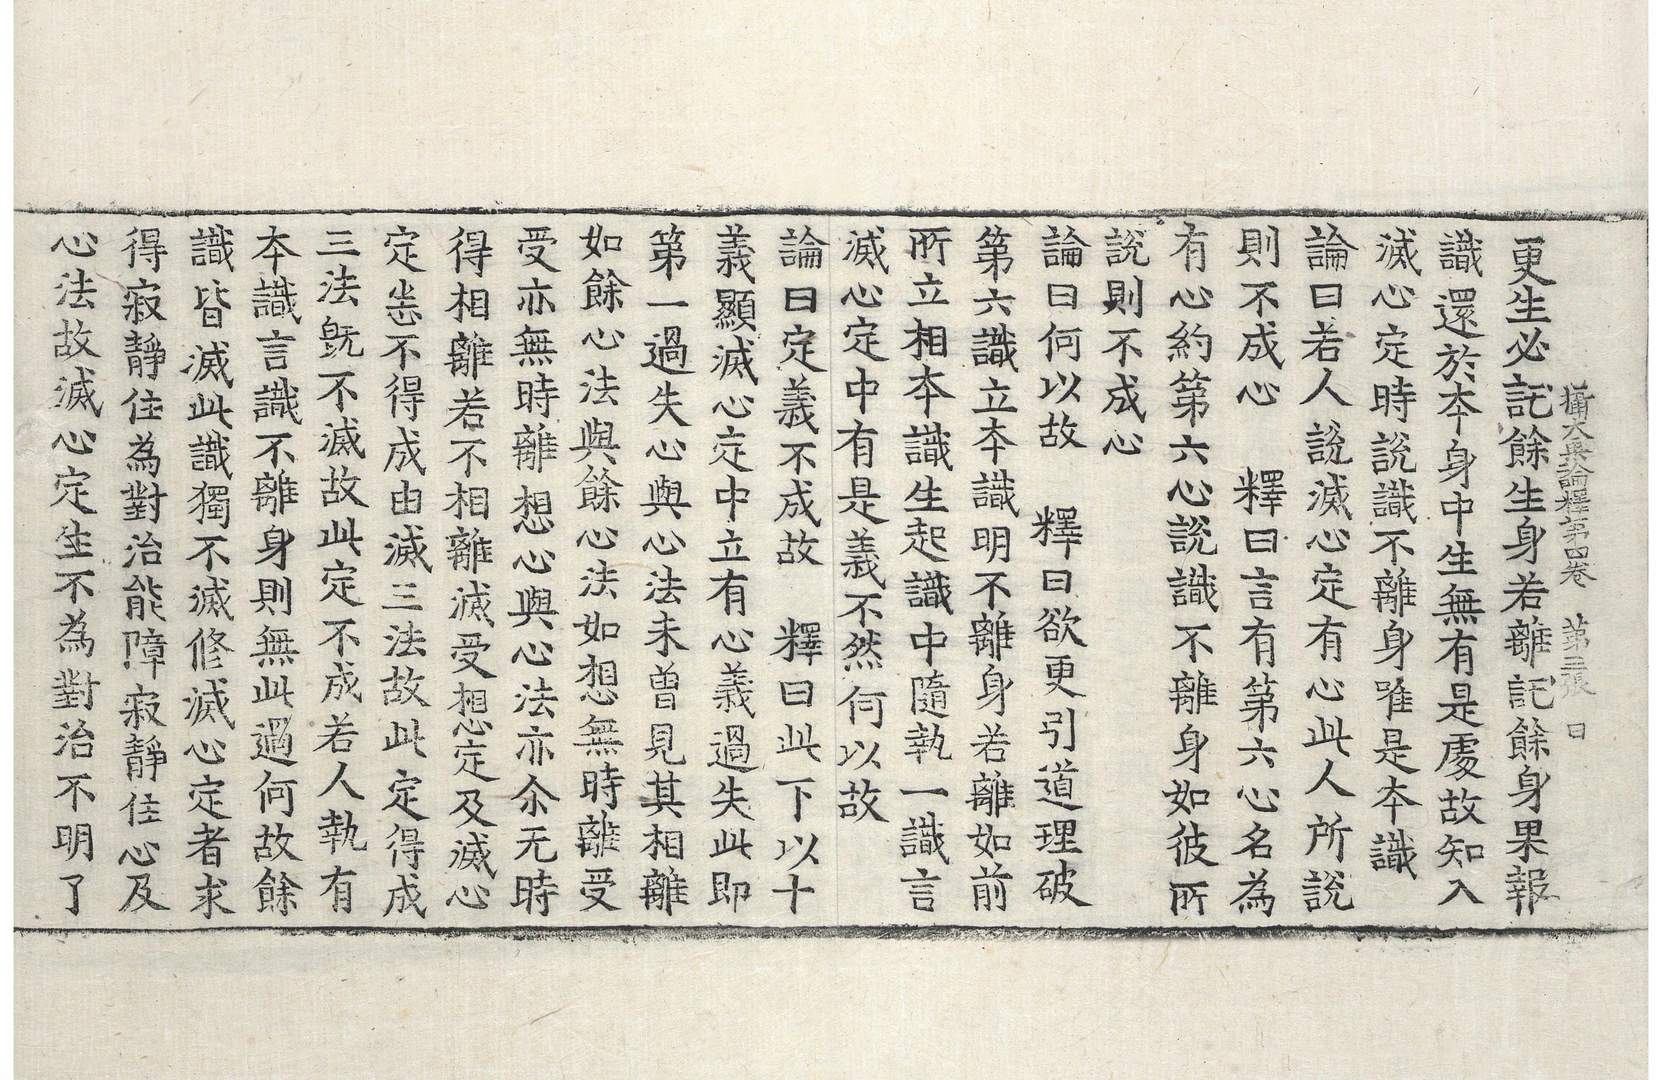 攝大乘論釋第四卷　第三張　日
更生必託餘生身若離託餘身果報
識還於本身中生無有是處故知入
滅心定時說識不離身唯是本識
論曰若人說滅心定有心此人所說
則不成心　釋曰言有第六心名為
有心約第六心說識不離身如彼所
說則不成心
論曰何以故　釋曰欲更引道理破
第六識立本識明不離身若離如前
所立相本識生起識中隨執一識言
滅心定中有是義不然何以故
論曰定義不成故　釋曰此下以十
義顯滅心定中立有心義過失此即
第一過失心與心法未曾見其相離
如餘心法與餘心法如想無時離受
受亦無時離想心與心法亦尒无時
得相離若不相離滅受想定及滅心
定悉不得成由滅三法故此定得成
三法旣不滅故此定不成若人執有
本識言識不離身則無此過何故餘
識皆滅此識獨不滅修滅心定者求
得寂靜住為對治能障寂靜住心及
心法故滅心定生不為對治不明了